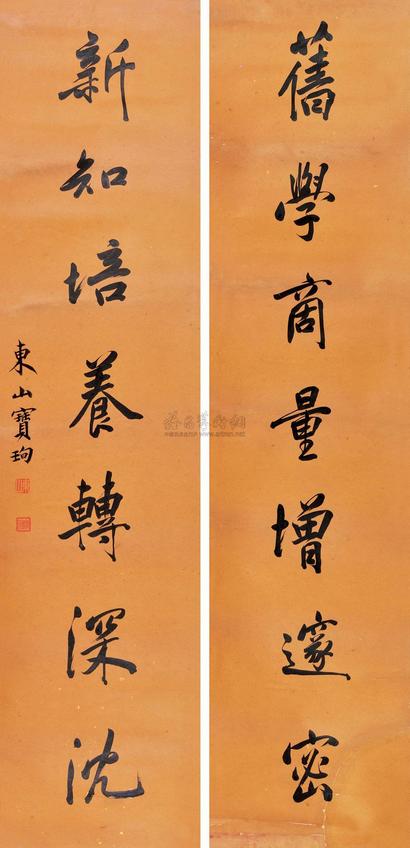 舊學商量增邃密
新知培養轉深沈
東山寶珣